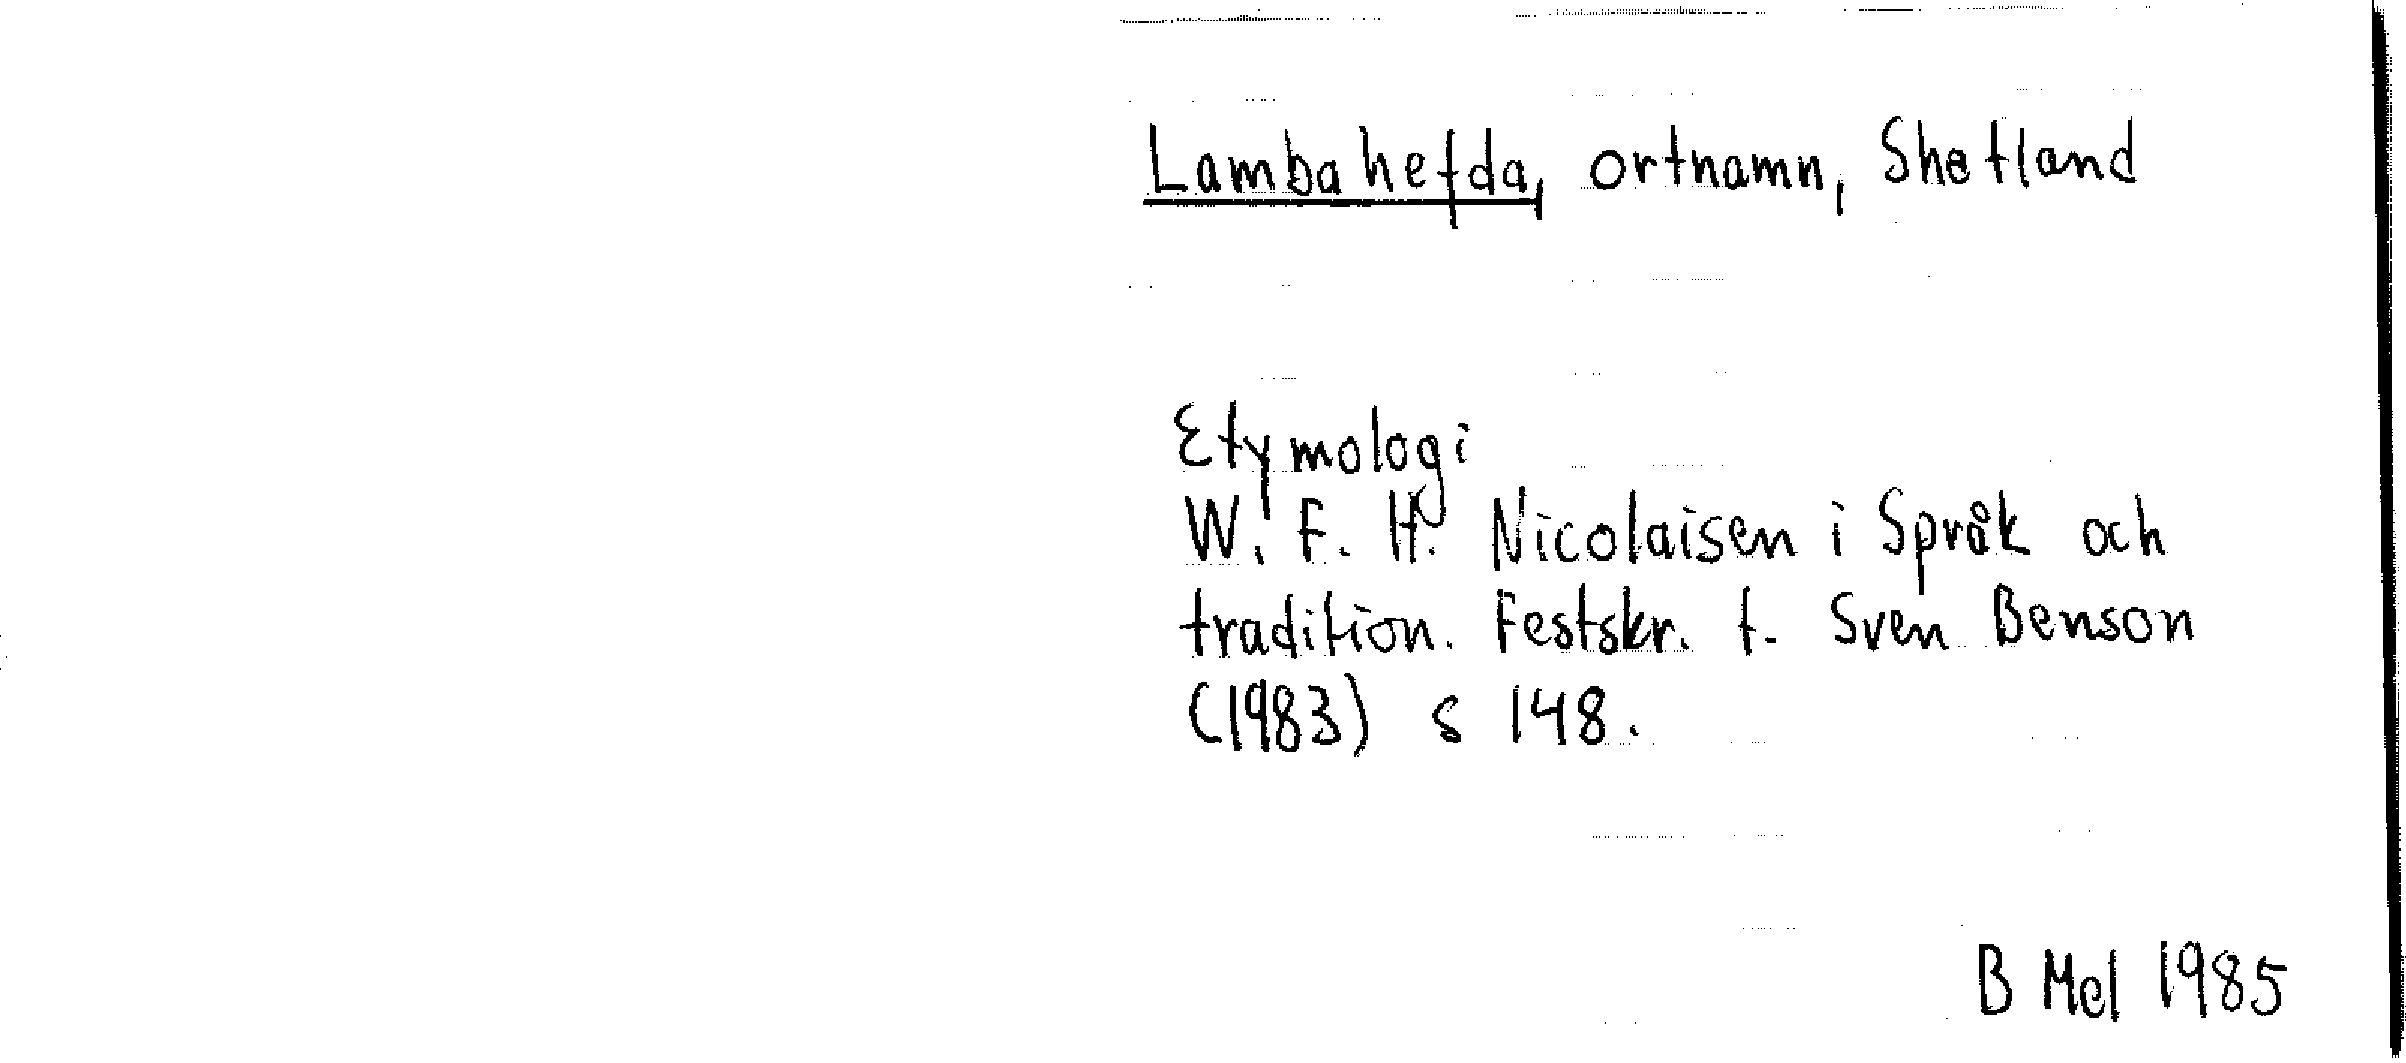 Lambahefda, ortnamn, Shetland
Etymologi
W. F. H. Nicolaisen i Språk och
tradition. Festskr. t. Sven Benson
(1983) s 148.
B Mel 1985